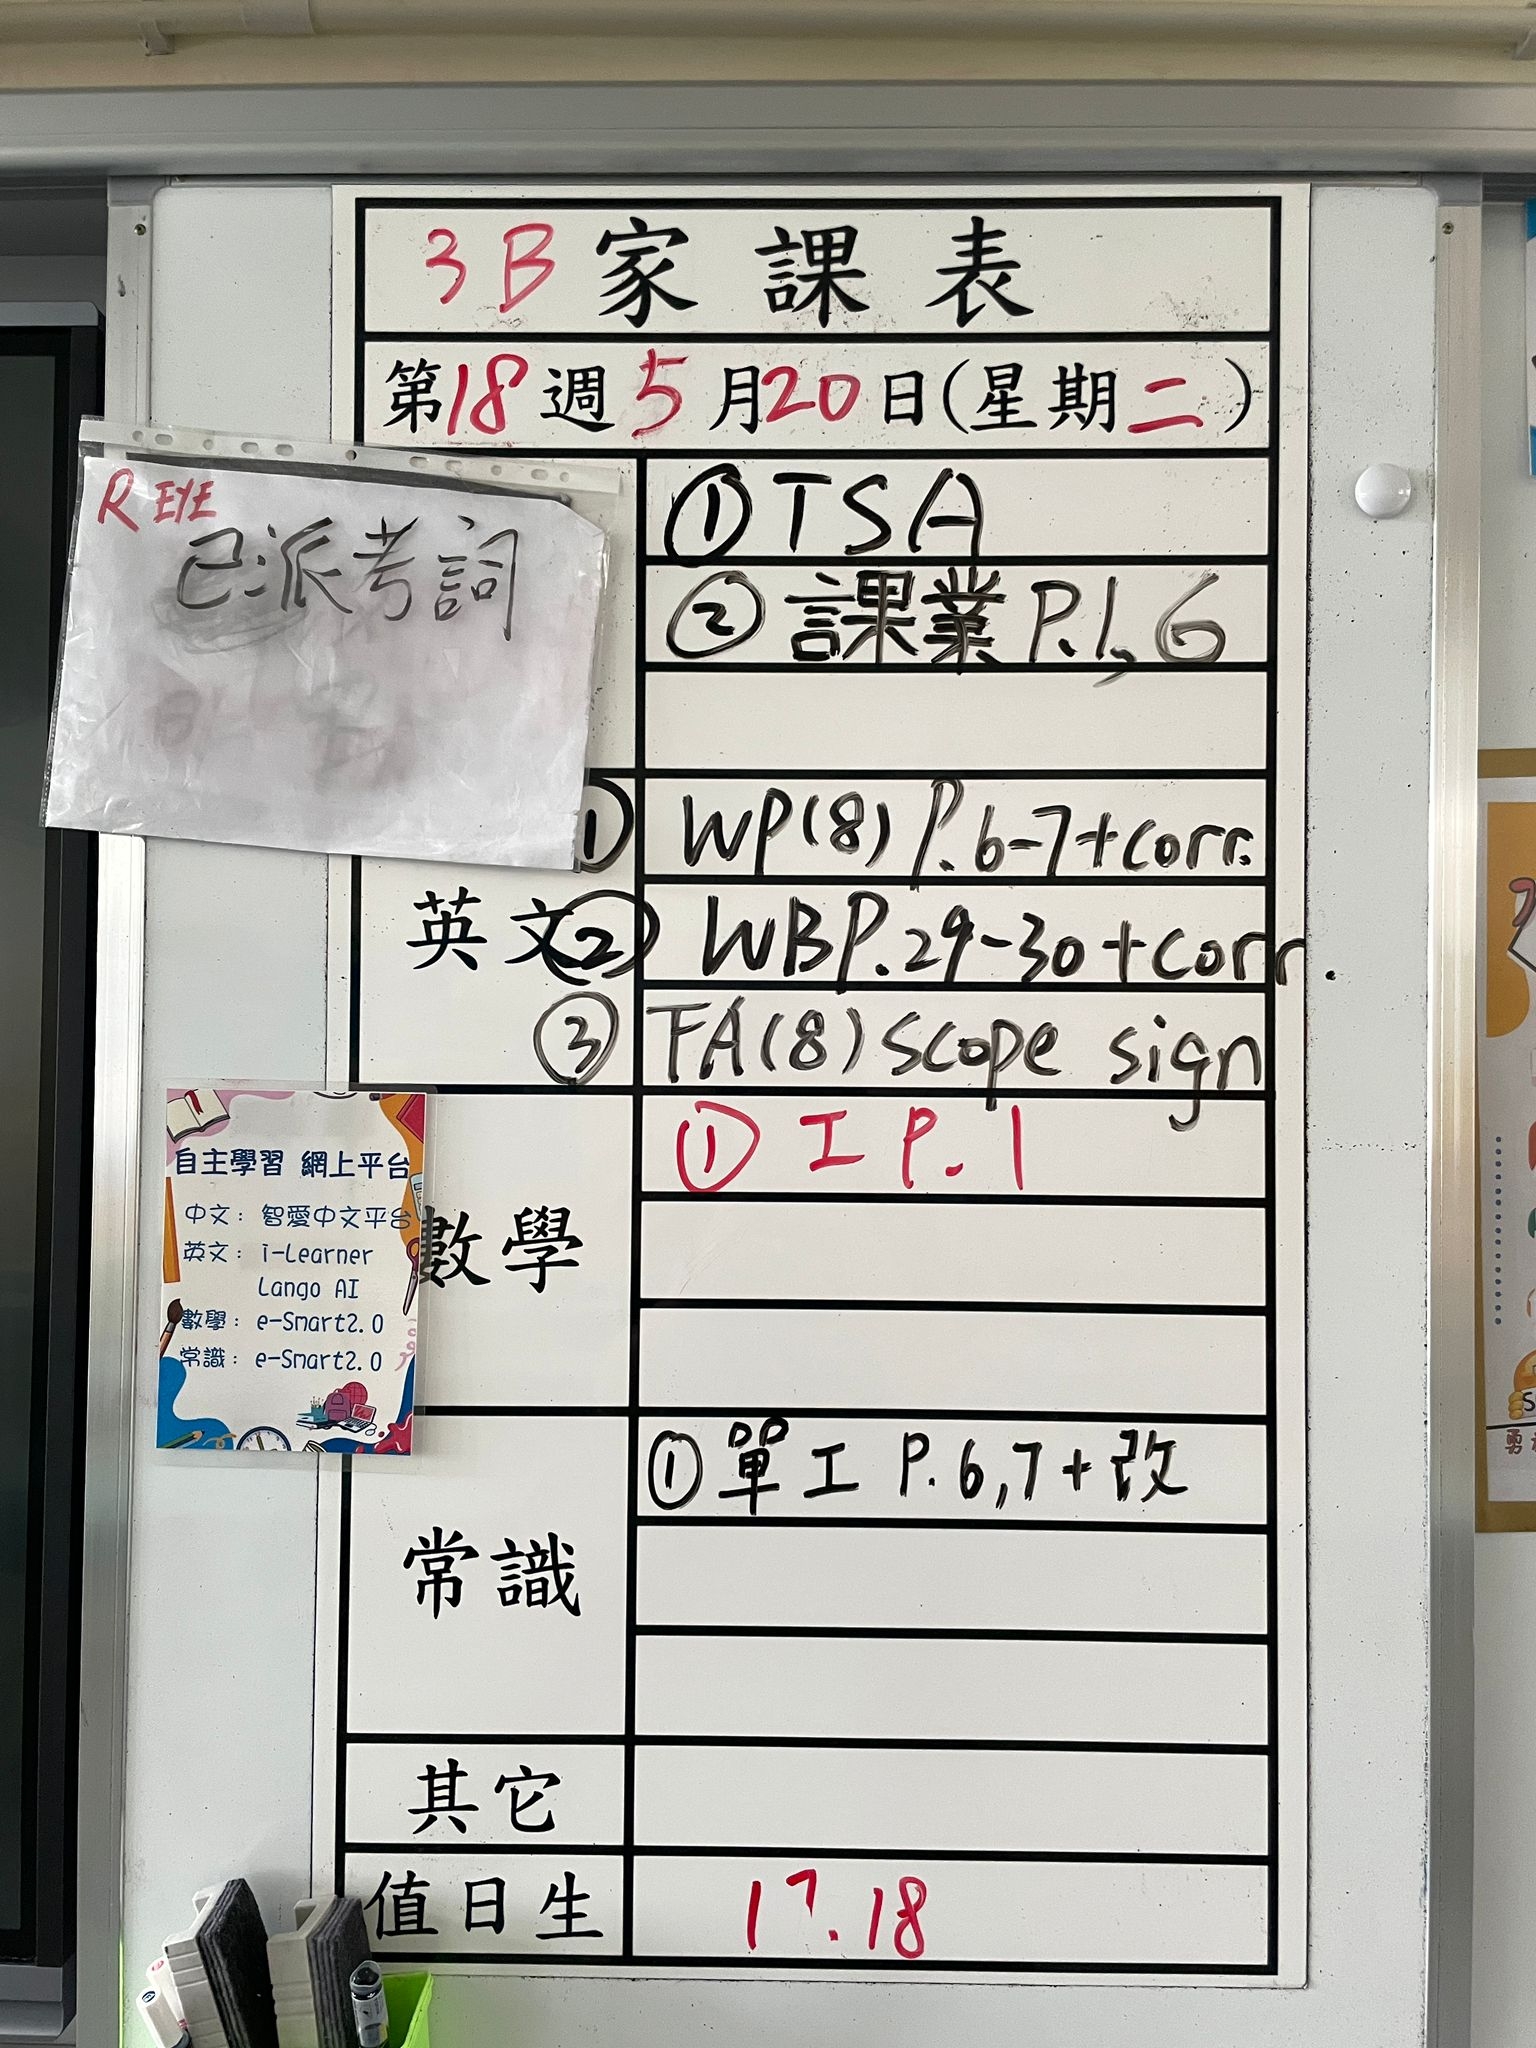 3B 家課表
第18週5月20日(星期二)
R EYE
已派考詞
① TSA
② 課業 P.1, 6
英文
① WP(8) P.6-7+corr.
② WB P.29-30+corr.
③ FA(8) scope sign
自主學習 網上平台
中文: 智愛中文平台
英文: i-Learner
Lango AI
數學: e-Smart2.0
常識: e-Smart2.0
數學
① 工 P.1
常識
① 單工 P.6,7+改
其它
值日生
17.18